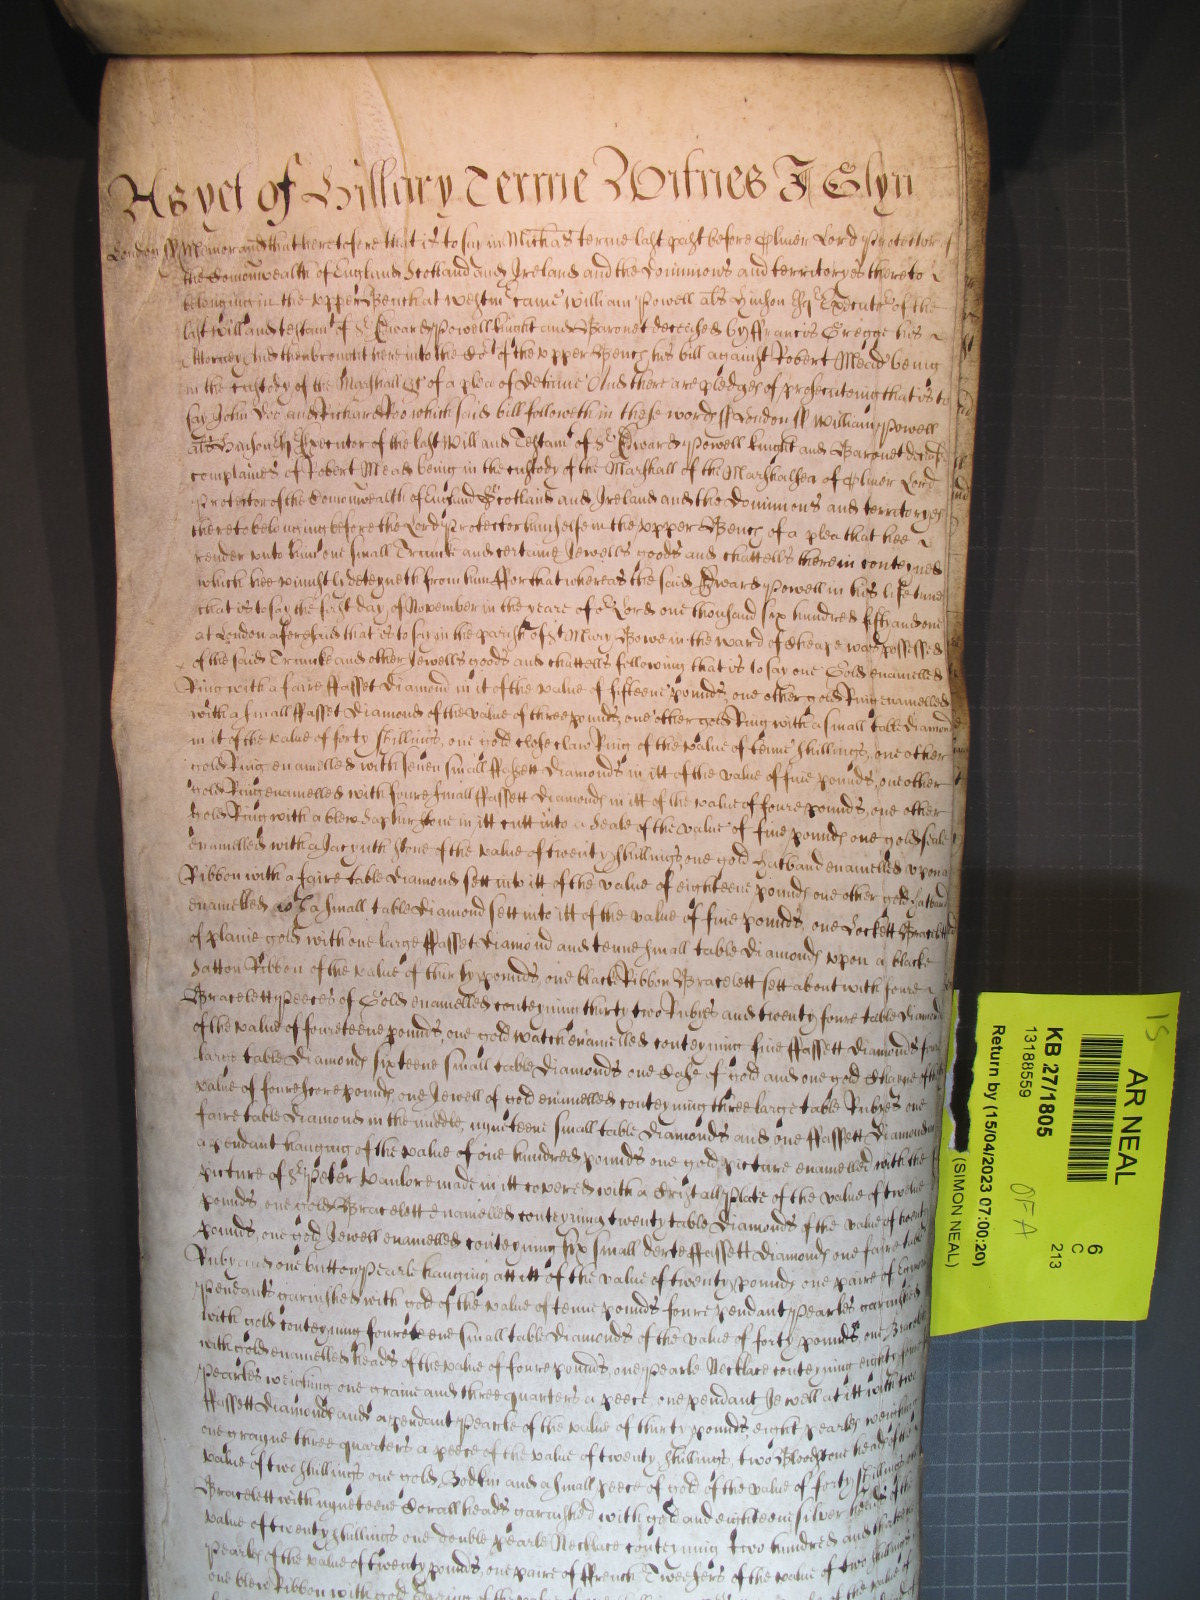 As yet of Hillary Terme Witnes J Glyn
London ss Memorand that heretofore that is to say in Michas terme last past before Oliver Lord Protector of
the Comonwealth of England Scotland and Ireland and the Dominions and territoryes thereto
belonging in the upper Bench at Westm came William Powell als Hinson Esq Executor of the
last will and testamt of Sr Edward Powell knight and Baronet deceased by Francis Gregge his
Attorney And then brought here into the Cort of the upper Bench his bill against Robert Mead being
in the custody of the Marshall &c of a plea of detinue And there are pledges of prosecuteing that is to
say John Doe and Richard Roo which said bill followeth in these words ss London ss William Powell
als Hinson Esq Executor of the last Will and Testamt of Sr Edward Powell knight and Baronet deceased
complaines of Robert Mead being in the custody of the Marshall of the Marshalsea of Oliver Lord
Protector of the Comonwealth of England Scotland and Ireland and the Dominions and territoryes
thereto belonging before the Lord Protector himselfe in the upper Bench of a plea that hee
render unto him one small Trunke and certaine Jewells goods and chattells therein conteyned
which hee uniustly deteyneth from him ffor that whereas the said Edward Powell in his life time
that is to say the first day of November in the yeare of or Lord one thousand six hundred fifty and one
at London aforesaid that is to say in the parish of St Mary Bowe in the ward of Cheape was possessed
of the said Truncke and other Jewells goods and chattells following that is to say one Gold enamelled
Ring with a faire ffasset diamond in it of the value of fifteene pounds, one other gold Ring enamelled
with a small ffasset Diamond of the value of three pounds, one other gold Ring with a small table Diamond
in it of the value of forty shillings, one gold close claw Ring of the value of tenne shillings, one other
gold Ring enamelled with seuen small ffassett Diamonds in itt of the value of fiue pounds, one other
gold Ring enamelled with foure small ffassett Diamonds in itt of the value of foure pounds, one other
gold Ring with a blew Saphir stone in itt cutt into a Seale of the value of fiue pounds one gold Seale
enamelled with a Jacynth stone of the value of twenty shillings, one gold hatband enamelled upon a
Ribbon with a faire table Diamond sett into itt of the value of eighteene pounds one other gold hatband
enamelled wth a small table Diamond sett into itt of the value of fiue pounds, one Lockett Bracelett
of plaine gold with one large ffasset Diamond and tenne small table Diamonds upon a blacke
Satton Ribbon of the value of thirty pounds, one black Ribbon Bracelett sett about with foure
Bracelett peeces of Gold enamelled conteyning thirty two Rubyes and twenty foure table Diamonds
of the value of foureteene pounds, one gold watch enamelled conteyning fiue ffassett Diamonds four
large table Diamonds sixteene small table Diamonds one Case of gold and one gold Chayne of the
value of fourescore pounds, one Jewell of gold enamelled conteyning three large table Rubyes one
faire table Diamond in the middle, nyneteene small table Diamonds and one ffassett Diamond
a pendant hanging of the value of one hundred pounds one gold picture enamelled with the
picture of Sr Peter Vanlore made in itt covered with a Cristall plate of the value of twelve
pounds, one gold Bracelett enamelled conteyning twenty table Diamonds of the value of twenty
pounds, one gold Jewell enamelled conteyning six small ffassett Diamonds one faire table
Ruby and one button Pearle hanging att itt of the value of twenty pounds one paire of
Pendants garnished with gold of the value of tenne pounds foure pendant Pearles garnished
with gold conteyning foureteene small table Diamonds of the value of forty pounds, one Bracelett
with gold enamelled heads of the value of foure pounds, one Pearle Necklace conteyning eighty
Pearles weighing one graine and three quarters a peece, one pendant Jewell at itt with two
ffassett Diamonds and a pendant Pearle of the value of thirty pounds, eight pearles weighing
one grayne three quarters a peece of the value of twenty shillings, two Bloodstone heads of the
value of two shillings one gold Bodkin and a small peece of gold of the value of forty shillings
Bracelett with nyneteene Corall heads garnished with gold and eighteene silver heads of the
value of twenty shillings one double pearle Necklace conteyning two hundred and thirteene
Pearles of the value of twenty pounds, one paire of ffrench Tweesers of the value of two shillings
one blew Ribbon with gold of the value of
AR NEAL
KB 27/1805
13188559
Return by (15/04/2023 07:00:20)
(SIMON NEAL)
6
C
213
OFA
15